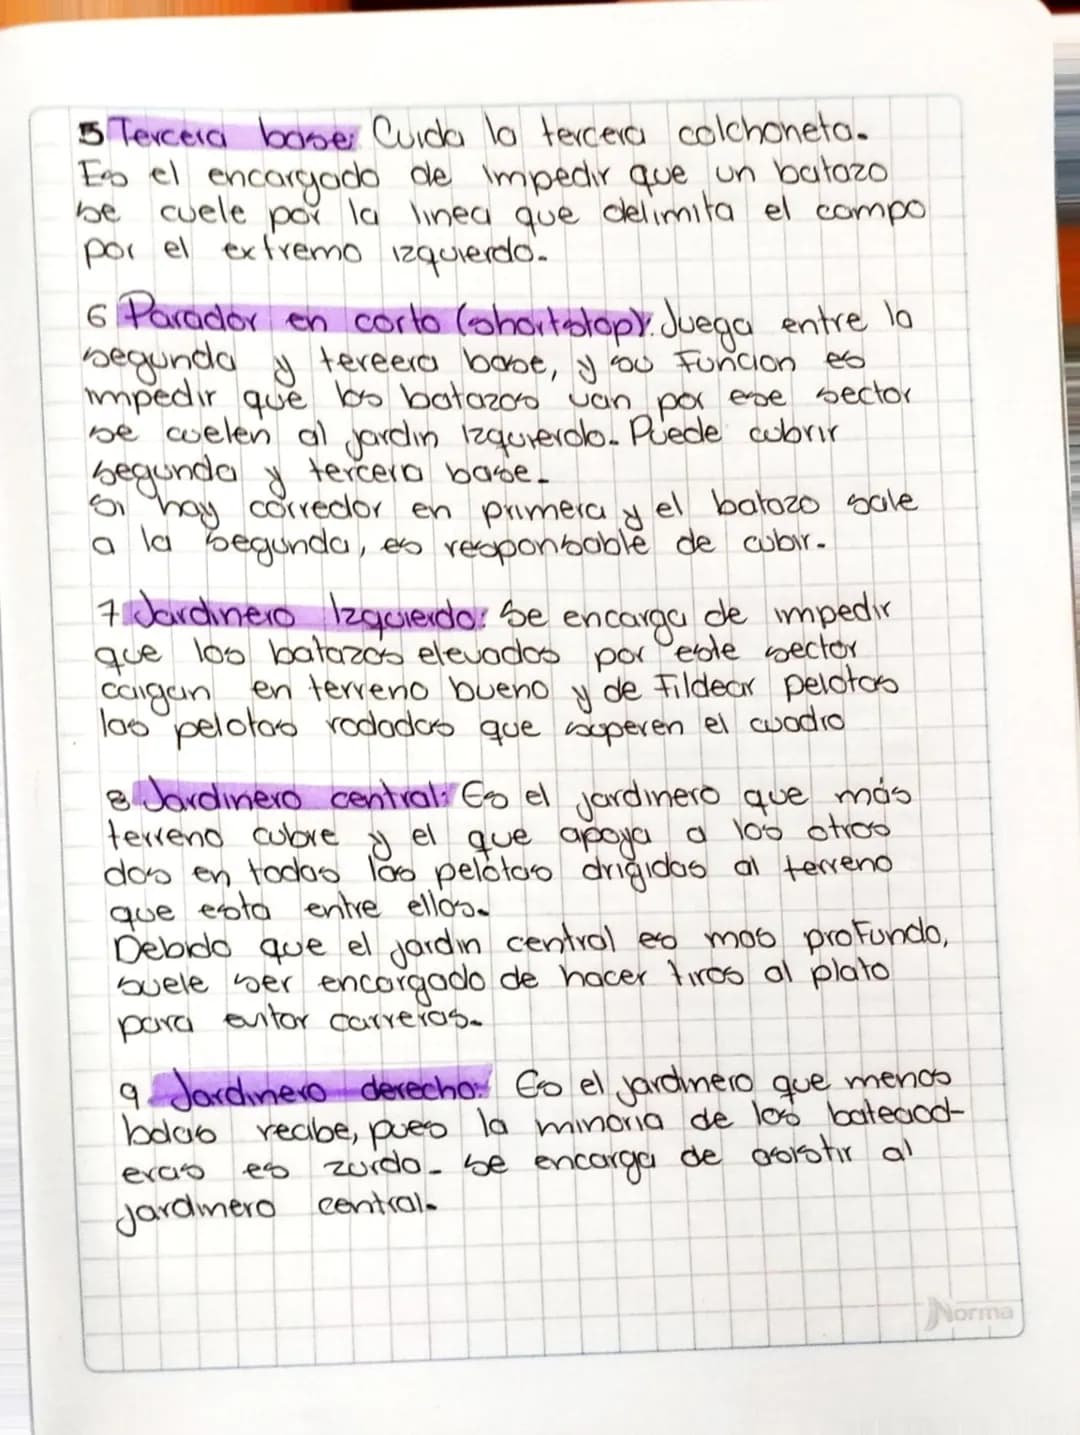 5 Tercera base: Cuida la tercera colchoneta.
Es el encargado de impedir que un batazo
se cuele por la linea que delimita el campo
por el extremo izquierdo.
6 Parador en corto (shortstop): Juega entre la
segunda y tercera base, y su Funcion es
impedir que los batazos van por ese sector
se cuelen al jardin Izquierdo. Puede cubrir
segunda y tercera base.
Si hay corredor en primera y el batazo sale
a la segunda, es responsable de cubir.
7 Jardinero Izquierdo: Se encarga de impedir
que los batazos elevados por este sector
caigan en terreno bueno y de Fildear pelotas
las pelotas rodadas que superen el cuadro
8 Jardinero central: Es el jardinero que más
terreno cubre y el que apoya a los otros
dos en todas las pelotas drigidas al terreno
que esta entre ellos.
Debido que el jardin central es mas profundo,
suele ser encargado de hacer tiros al plato
para evitar carreras.
9 Jardinero derecho: Es el jardinero que menos
bolas recibe, pues la minoria de los bateaod-
eras es zurdo. Se encarga de asistir al
jardinero central.
Norma